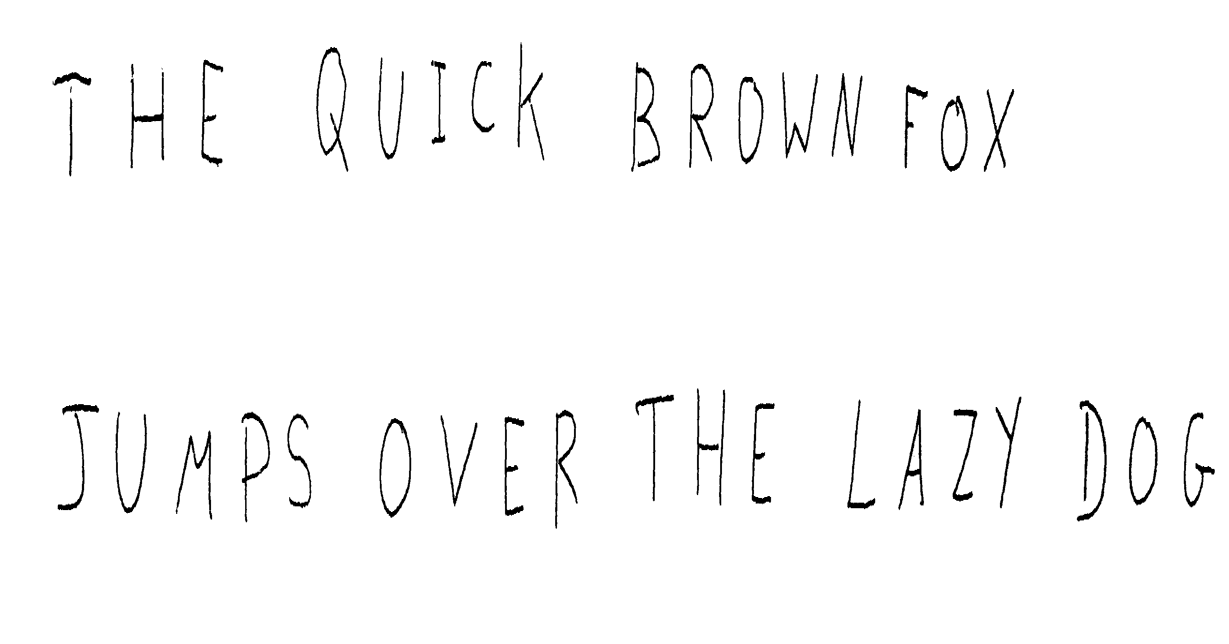 THE QUICK BROWN FOX
JUMPS OVER THE LAZY DOG